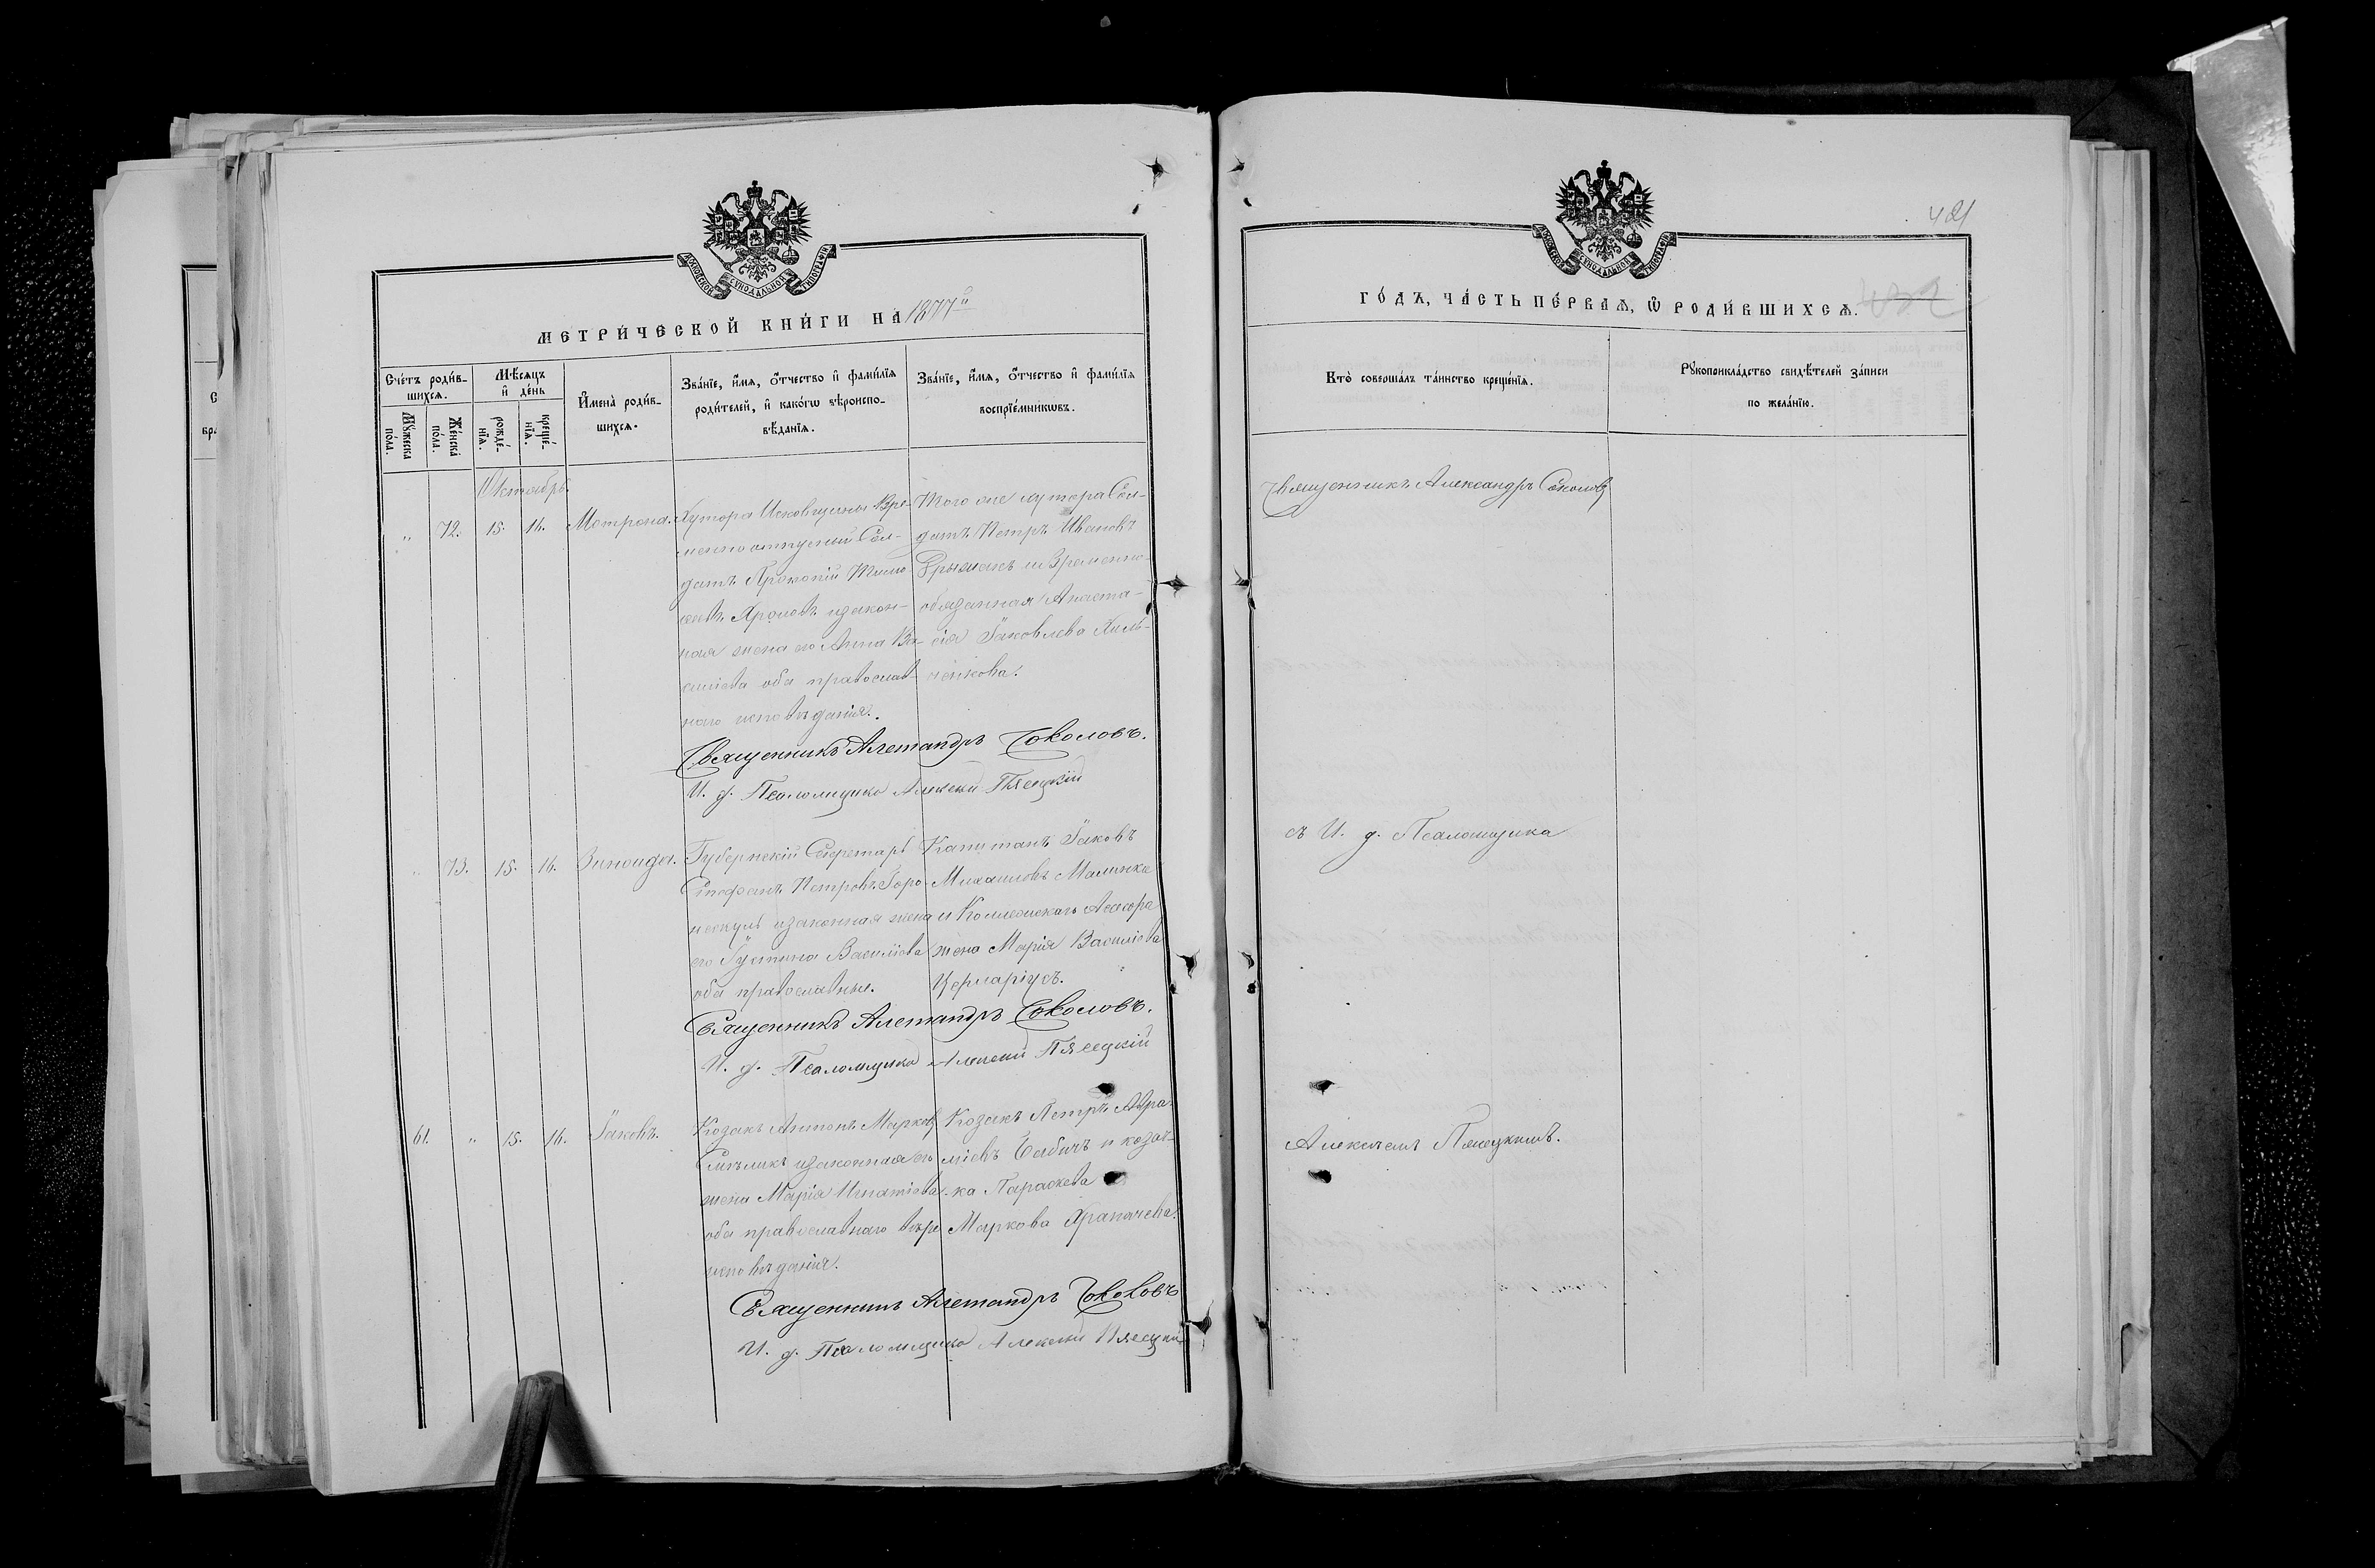 МОСКОВСКОЙ СѴНОДАЛЬНОЙ ТИПОГРАФІИ
МЕТРИ́ЧЕСКОЙ КНИ́ГИ НА́ 1877й
Сче́тъ роди́в-
шихсѧ.
Мꙋ́жеска
по́ла.
Же́нска
по́ла.
Мѣ́сѧцъ
и҆ де́нь
рожде́-
нїѧ.
креще́-
нїѧ.
И҆мена̀ роди́в-
шихсѧ.
Зва́нїе, и҆́мѧ, ѻ҆́тчество и҆ фами́лїѧ
роди́телей, и҆ како́гѡ вѣ̈роиспо-
вѣ́данїѧ.
Зва́нїе, и҆́мѧ, ѻ҆́тчество и҆ фами́лїѧ
воспрїе́мникѡвъ.
Октябрь.
" 72. 15. 16. Матрона.
Хутора Исковщины Вре-
менноотпускный Сол-
датъ Прокопій Тимо
ееевъ Хроловъ изакон-
ная жена его Анна Ва-
силіева оба православ-
наго исповѣданія.
Того же хутора Сол-
датъ Петръ Ивановъ
Грыжакъ и Временно-
обязанная Анаста-
сія Яковлева Хиль-
ченкова.
Священникъ Александръ Соколовъ.
И. д. Псаломщика Алексѣй Пясецкій
" 73. 15. 16. Зинаида.
Губернскій Секретарь
Стефанъ Петровъ Горо-
нескулъ изаконная жена
его Густина Васильева
оба православные.
Капитанъ Яковъ
Михаиловъ Малинка
и Коллежскаго Ассесора
жена Марія Василіева
Церпаріусъ.
Священникъ Александръ Соколовъ.
И. д. Псаломщика Алексѣй Пясецкій
61. " 15. 16. Яковъ.
Козакъ Антонъ Марковъ
Смѣликъ изаконная его
жена Марія Игнатіева
оба православнаго вѣро
исповѣданія.
Козакъ Петръ Авра-
міевъ Бабичъ и козач-
ка Параскева
Маркова Храпачева.
Священникъ Александръ Соколовъ
И. д. Псаломщика Алексѣй Пясецкій
421
МОСКОВСКОЙ СѴНОДАЛЬНОЙ ТИПОГРАФІИ
ГО́ДЪ, ЧА́СТЬ ПЕ́РВАѦ, Ѡ҆ РОДИ́ВШИХСѦ.
Кто̀ соверша́лъ та́инство креще́нїѧ.
Рꙋкоприкла́дство свидѣ́телей за́писи
по жела́нїю.
Священникъ Александръ Соколовъ
съ И. д. Псаломщика
Алексѣемъ Пясецкимъ.